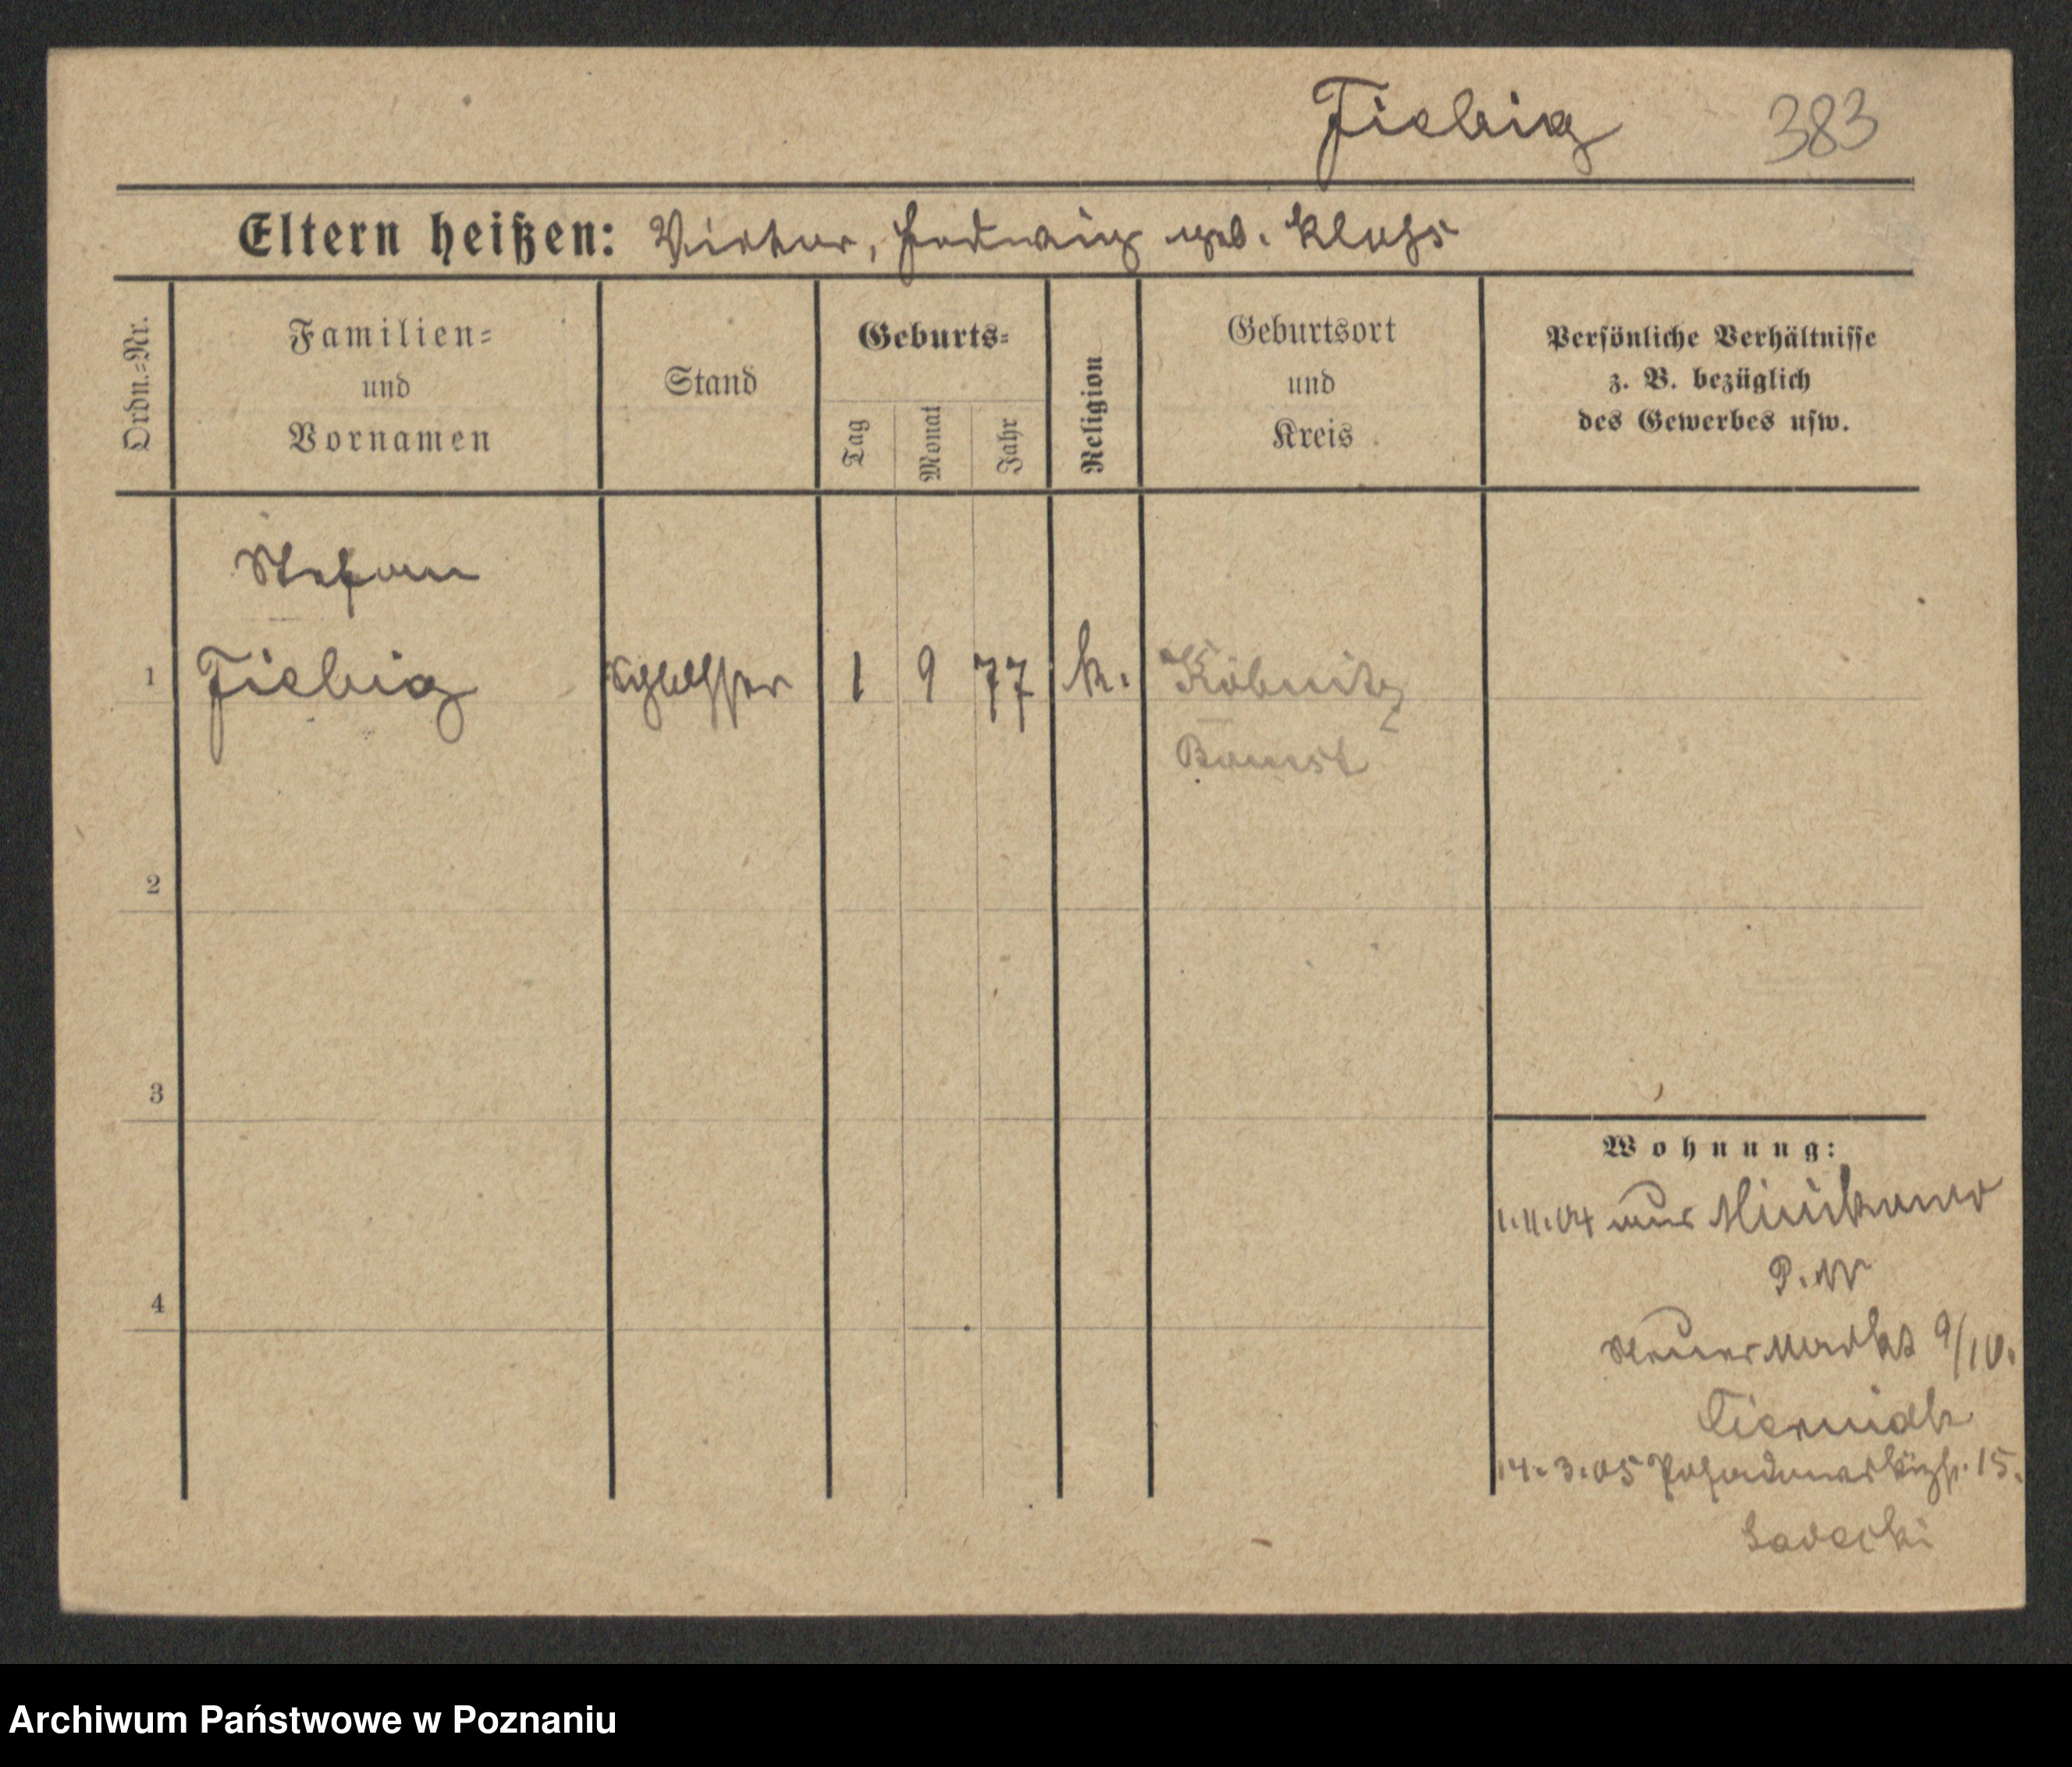 Fiebig 383
Eltern heißen: Victor, Hedwig geb. Kluhs
Ordn.-Nr.
Familien-
und
Vornamen
Stand
Geburts-
Tag
Monat
Jahr
Religion
Geburtsort
und
Kreis
Persönliche Verhältnisse
z. B. bezüglich
des Gewerbes usw.
Stefan
1 Fiebig Schlosser 1 9 77 k. Köbnitz
Bomst
2
3
4
Wohnung:
1.11.04 aus
P.W
Neuer Markt 9/10.
14.3.05 15.
Sadecki
Archiwum Państwowe w Poznaniu